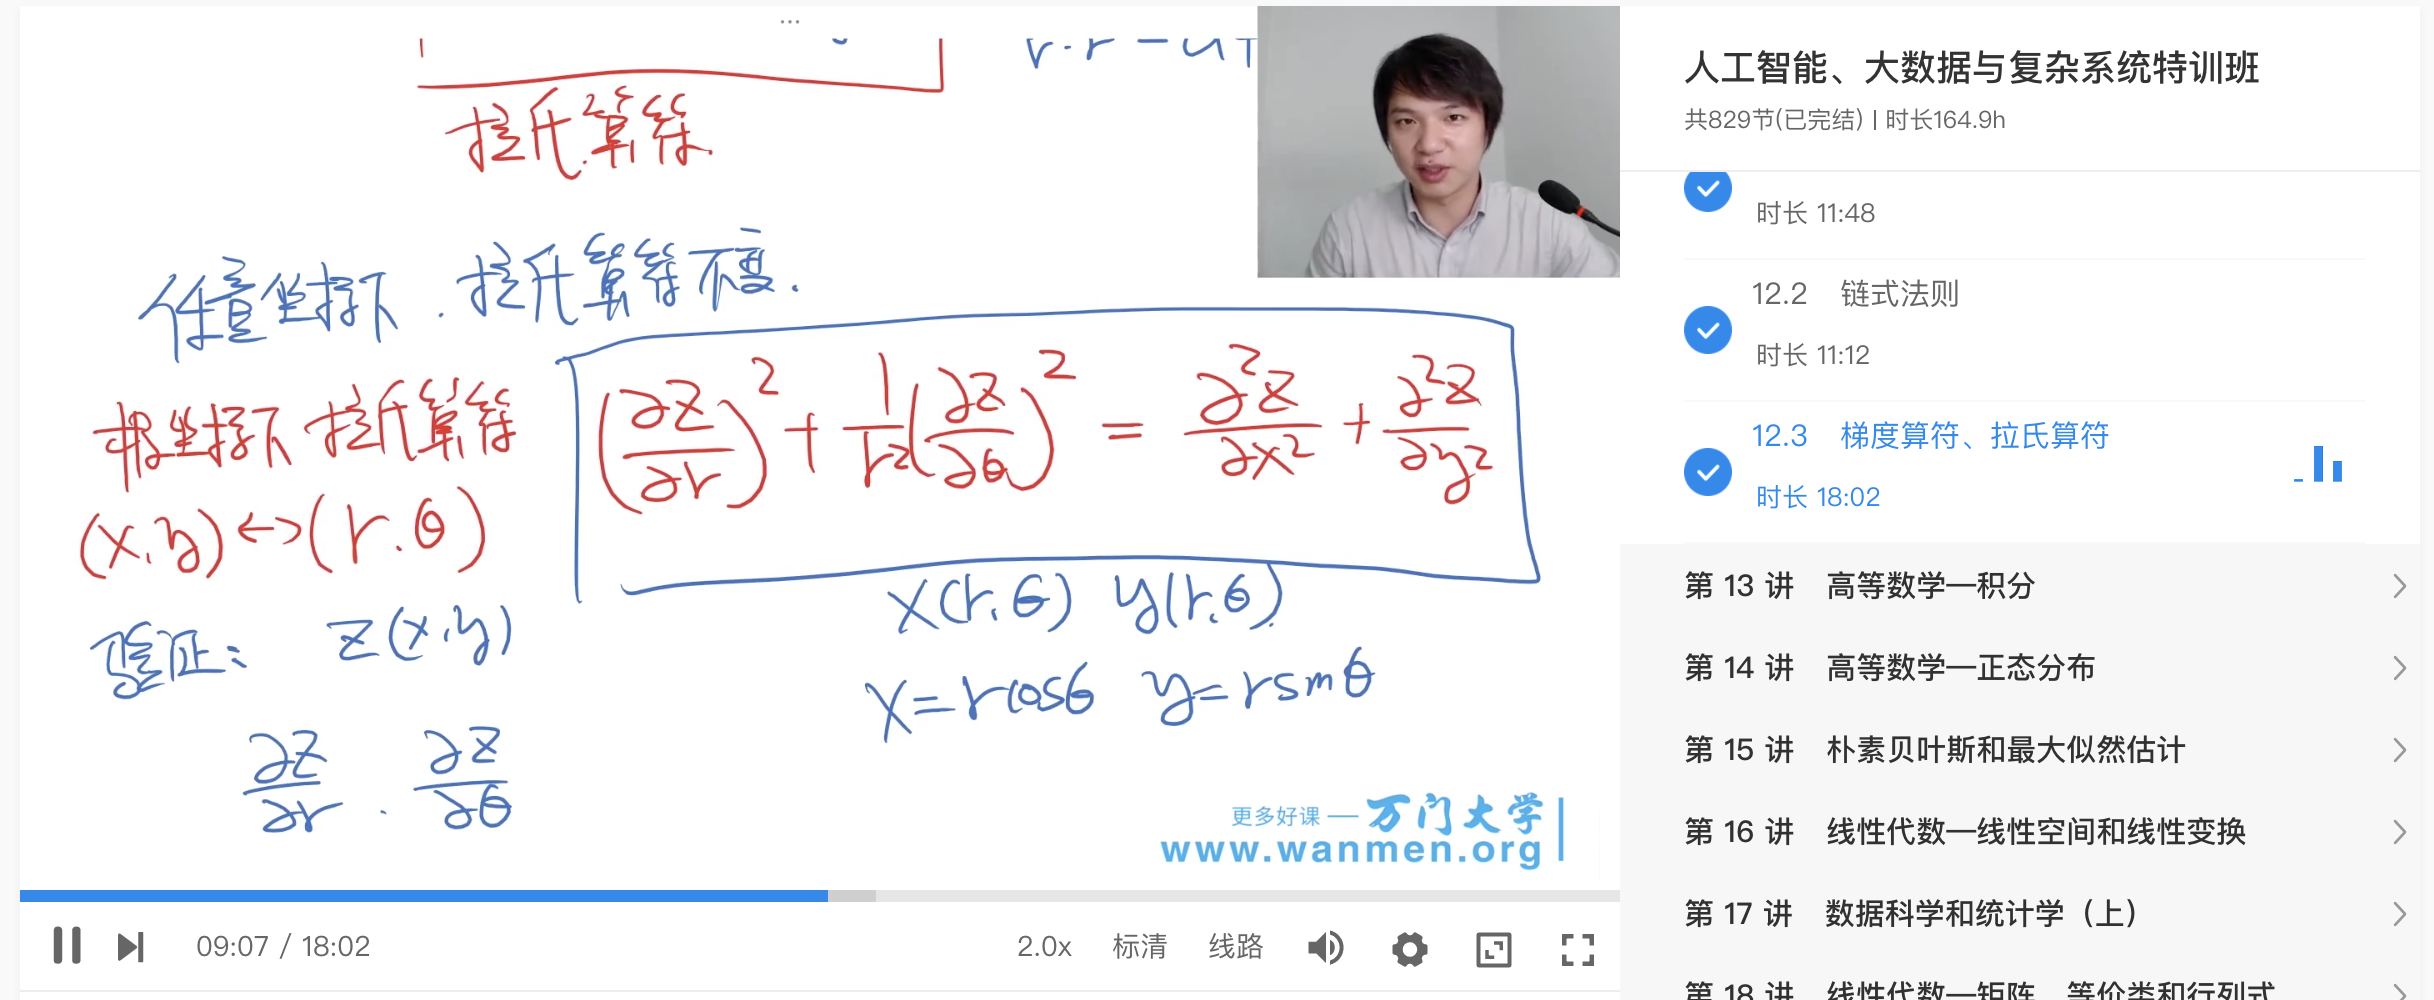 ...
r·r
拉氏算符
任意坐标下.拉氏算符不变.
极坐标下 拉氏算符
(∂z/∂r)² + 1/r²(∂z/∂θ)² = ∂²z/∂x² + ∂²z/∂y²
(x,y)↔(r.θ)
x(r,θ) y(r,θ)
验证: z(x,y)
x=rcosθ y=rsinθ
∂z/∂r . ∂z/∂θ
更多好课 — 万门大学
www.wanmen.org
09:07 / 18:02
2.0x 标清 线路
人工智能、大数据与复杂系统特训班
共829节(已完结) | 时长164.9h
时长 11:48
12.2 链式法则
时长 11:12
12.3 梯度算符、拉氏算符
时长 18:02
第 13 讲 高等数学—积分
第 14 讲 高等数学—正态分布
第 15 讲 朴素贝叶斯和最大似然估计
第 16 讲 线性代数—线性空间和线性变换
第 17 讲 数据科学和统计学（上）
第 18 讲 线性代数—矩阵、等价类和行列式